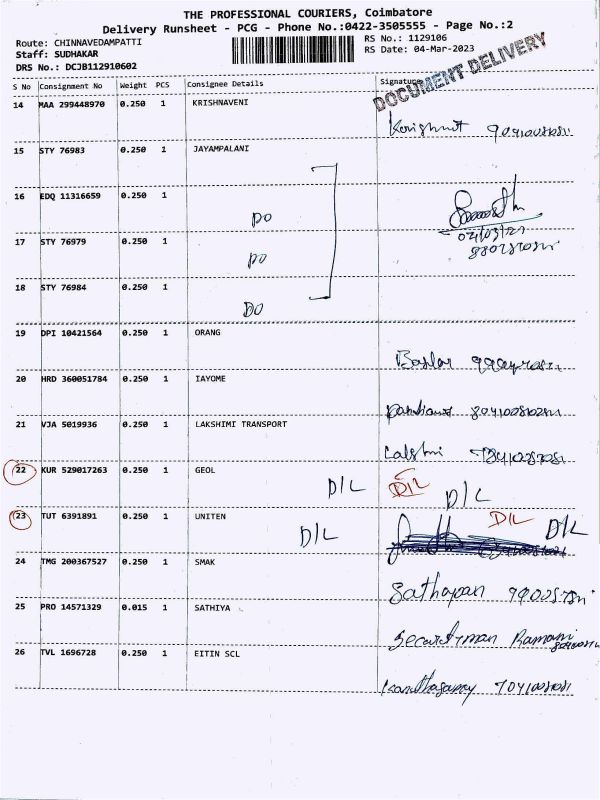 THE PROFESSIONAL COURIERS, Coimbatore
Delivery Runsheet - PCG - Phone No.:0422-3505555 - Page No.:2
Route: CHINNAVEDAMPATTI
Staff: SUDHAKAR
DRS No.: DCJB112910602
RS No.: 1129106
RS Date: 04-Mar-2023
DOCUMENT DELIVERY
S No Consignment No Weight PCS Consignee Details Signature
14 MAA 299448970 0.250 1 KRISHNAVENI
15 STY 76983 0.250 1 JAYAMPALANI
16 EDQ 11316659 0.250 1
DO
17 STY 76979 0.250 1
DO
18 STY 76984 0.250 1
DO
19 DPI 10421564 0.250 1 ORANG
20 HRD 360051784 0.250 1 IAYOME
21 VJA 5019936 0.250 1 LAKSHIMI TRANSPORT
22 KUR 529017263 0.250 1 GEOL
D/L D/L D/L
23 TUT 6391891 0.250 1 UNITEN
D/L D/L D/L
24 TMG 200367527 0.250 1 SMAK
Sathapan
25 PRO 14571329 0.015 1 SATHIYA
Ramani
26 TVL 1696728 0.250 1 EITIN SCL